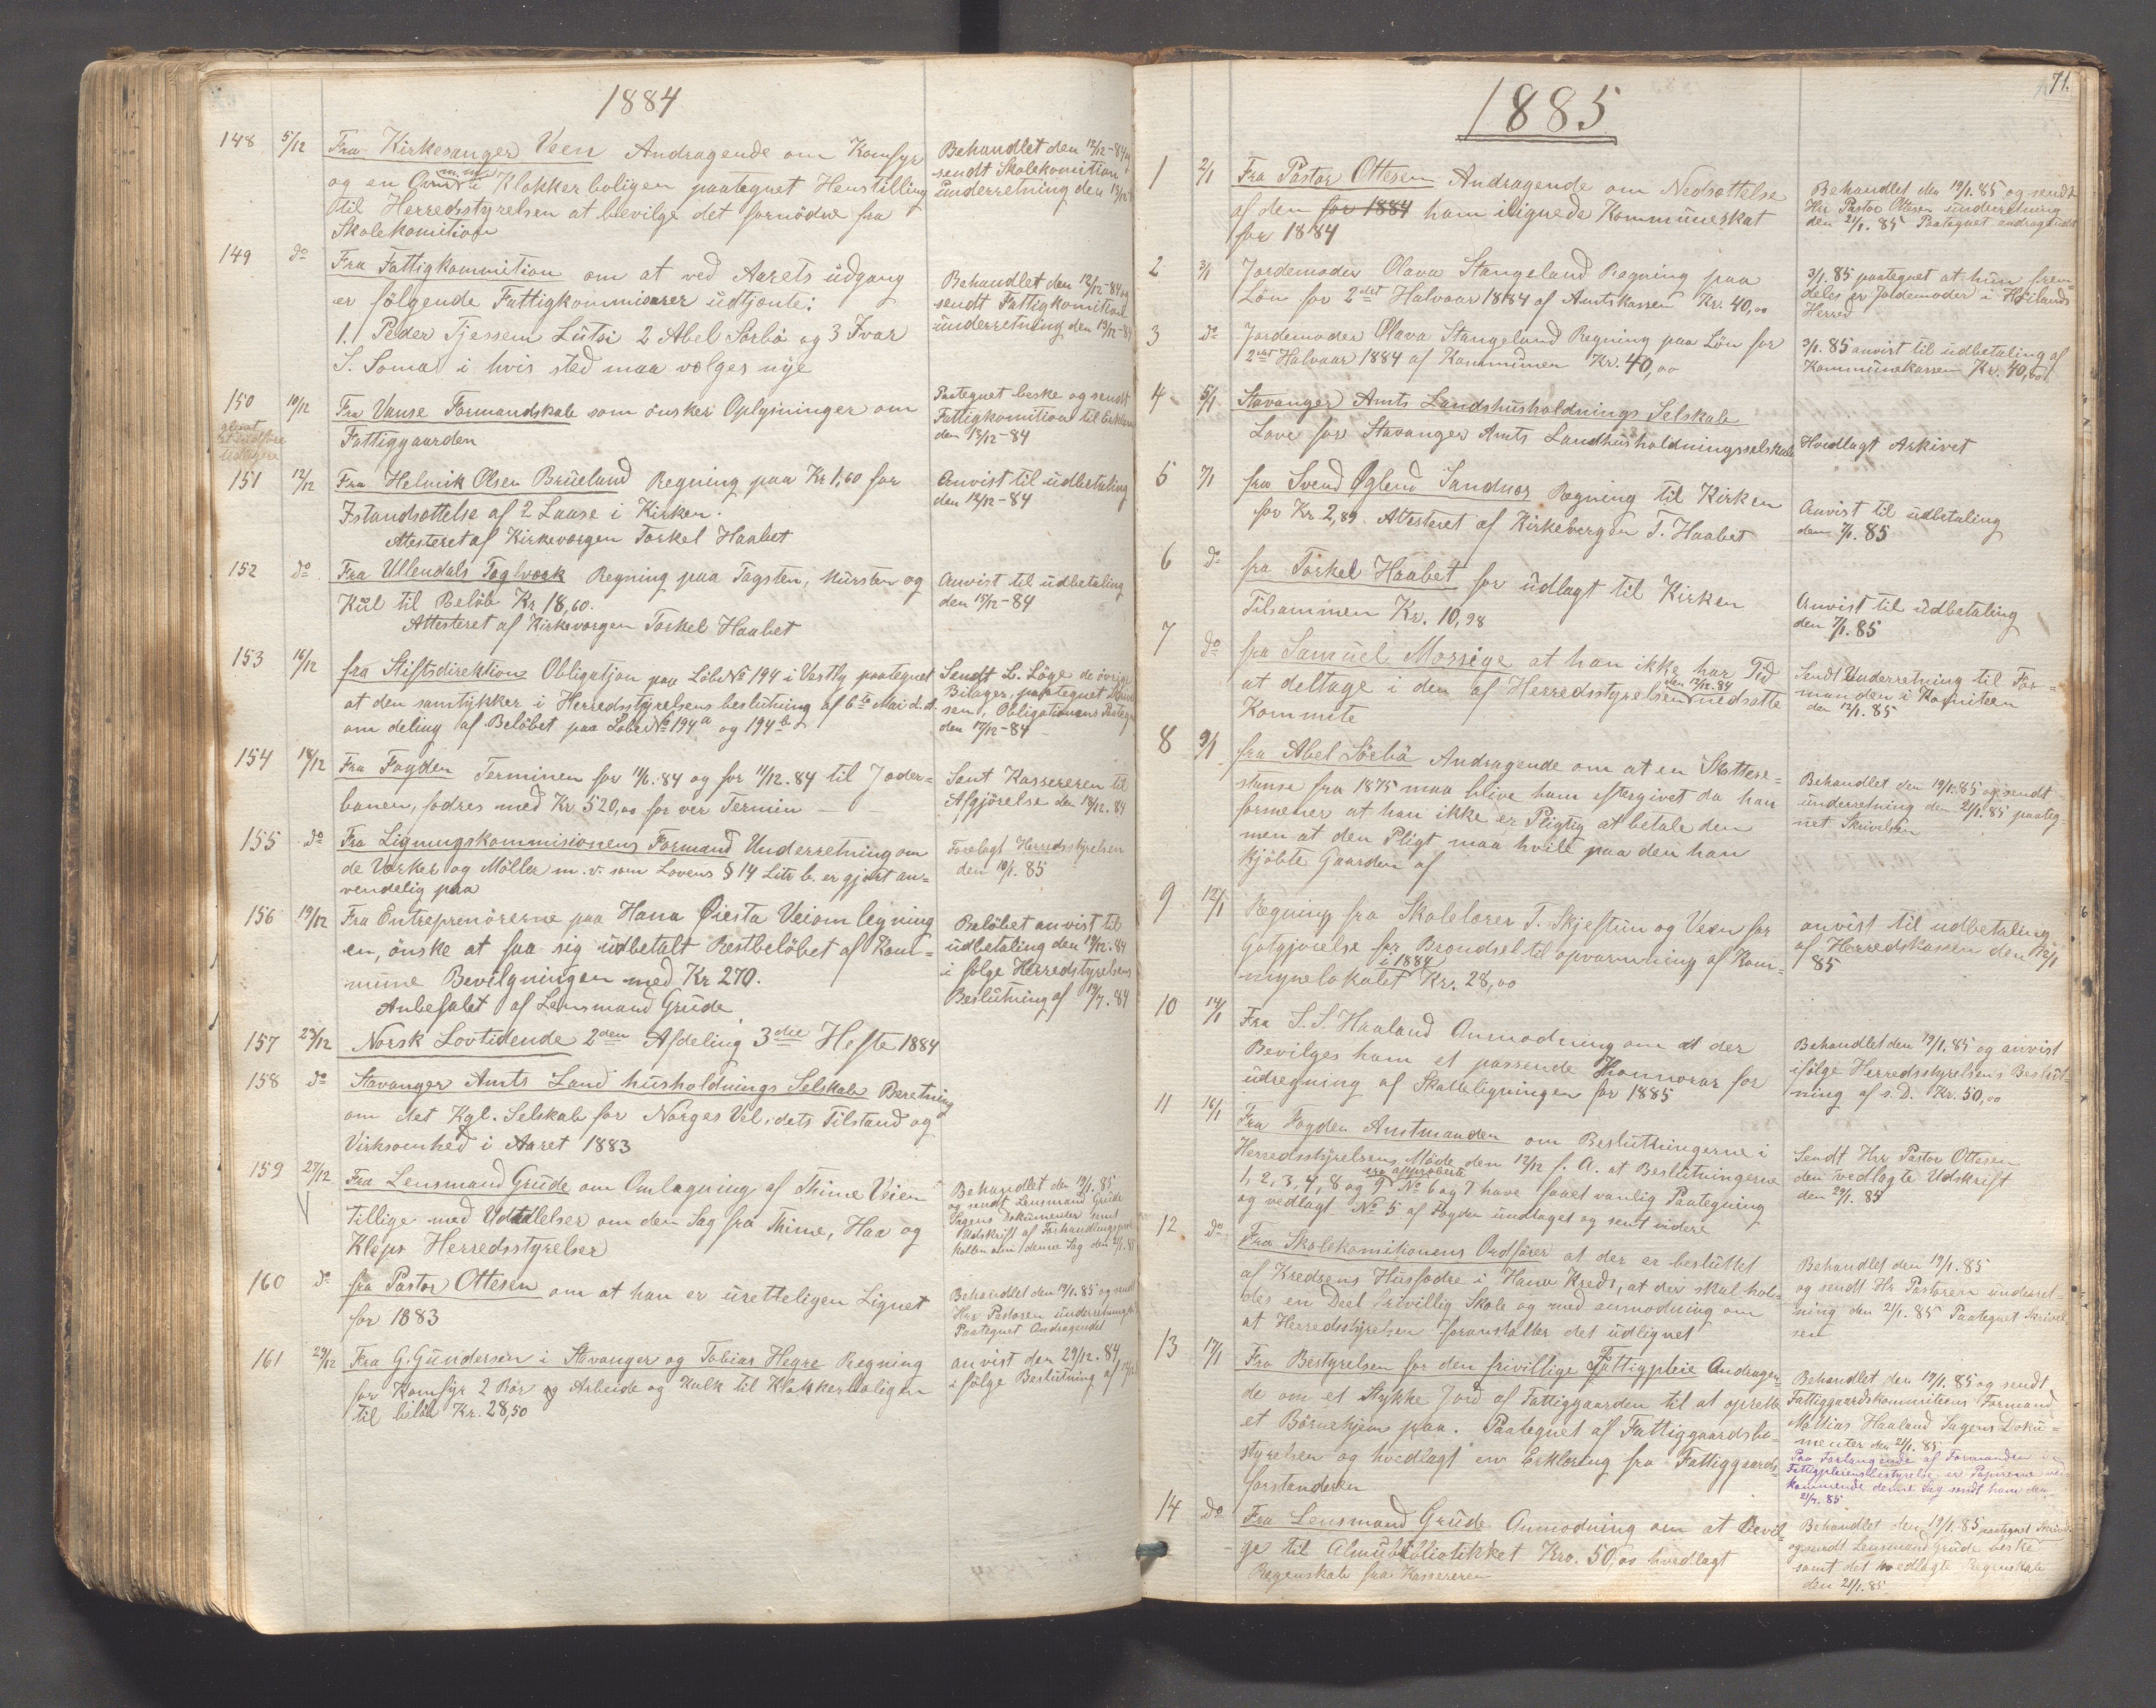 1884
148 5/12 Fra Kirkesanger Veen Andragende om Komfyr
og en Ovn m.m. i Klokkerboligen paategnet Henstilling
til Herredsstyrelsen at bevilge det fornödne fra
Skolekomition
Behandlet den 12/12-84 og
sendt Skolekomition
underretning den 13/12
149 do Fra Fattigkommition om at ved Aarets udgang
er fölgende Fattigkommisærer udtjente:
1. Peder Tjessem Lutsi 2 Abel Sörbö og 3 Ivar
S. Soma i hvis sted maa vælges nye
Behandlet den 12/12-84 og
sendt Fattigkomition
underretning den 13/12-84
150 10/12 Fra Vanse Formandskab som önsker Oplysninger om
Fattiggaarden
Paategnet beske og sendt
Fattigkomition til Erklæ
den 13/12-84
151 12/12 Fra Helmik Olsen Brueland Regning paa Kr 1,60 for
Istandsættelse af 2 Laase i Kirken.
Attesteret af Kirkeværgen Torkel Haabet
Anvist til udbetaling
den 12/12-84
152 do Fra Ullendals Teglværk Regning paa Tagsten, Mursten og
Kul til Belöb Kr 18,60.
Attesteret af Kirkeværgen Torkel Haabet
Anvist til udbetaling
den 15/12-84
153 16/12 fra Stiftsdirektion Obligatjon paa LöbeNo 194 i Vestly paategnet
at den samtykker i Herredsstyrelsens beslutning af 6te Mai d.A.
om deling af Belöbet paa LöbeNo 194a og 194b
Sendt L. Löge de övrige
Bilager, paategnet
sen, Obligationens
den 17/12-84
154 18/12 Fra Fogden Terminen for 11/6.84 og for 11/12.84 til Jæder-
banen, fodres med Kr. 520,00 for ver Termin
Sent Kassereren til
Afgjörelse den 18/12.84
155 do Fra Ligningskommisionens Formand Underretning om
de Værker og Möller m.v. som Lovens § 14 Litr b. er gjort an-
vendelig paa
Forelagt Herredsstyrelsen
den 19/1.85
156 19/12 Fra Entreprenörerne paa Hana Öiesta Veiomlegning
en, önske at faa sig udbetalt Restbelöbet af Kom-
mune Bevilgningen med Kr 270.
Anbefalet af Lensmand Grude
Belöbet anvist til
udbetaling den 19/12.84
i fölge Herredsstyrelsens
Beslutning af 19/7.84
157 23/12 Norsk Lovtidende 2den Afdeling 3die Hefte 1884
158 do Stavanger Amts Land husholdnings Selskab Beretning
om det Kgl. Selskab for Norges Vel, dets Tilstand og
Virksomhed i Aaret 1883
159 27/12 Fra Lensmand Grude om Omlægning af Thime Veien
Tillige med Udtalelser om den Sag fra Thime, Haa og
Kleps Herredsstyrelser
Behandlet den 19/1.85
og sendt Lensmand Grude
Sagens Dokumenter samt
Udskrift af Forhandlingspro
kollen om denne Sag den 21/1.85
160 do fra Pastor Ottesen om at han er uretteligen Lignet
for 1883
Behandlet den 19/1.85 og sendt
Hrr Pastoren underretning
Paategnet Andragendet
161 29/12 Fra G. Gundersen i Stavanger og Tobias Hegre Regning
for Komfyr 2 Rör og Arbeide og Kalk til Klokkerboligen
til belöb Kr. 28,50
anvist den 29/12.84
i fölge Beslutning af 12/12
1885
71.
1 2/1 Fra Pastor Ottesen Andragende om Nedsættelse
af den for 1884 ham ilignede Kommuneskat
for 1884
Behandlet den 19/1.85 og sendt
Hrr Pastor Ottesen underretning
den 21/1.85 Paategnet andragendet
2 3/1 Jordemoder Olava Stangeland Regning paa
Lön for 2det Halvaar 1884 af Amtskassen Kr. 40,00
3/1.85 paategnet at hun frem-
deles er Joldemoder i Höilands
Herred
3 do Jordemoder Olava Stangeland Regning paa Lön for
2det Halvaar 1884 af Kommunen Kr. 40,00
3/1.85 anvist til udbetaling af
Kommunekassen Kr. 40,00
4 5/1 Stavanger Amts Landshusholdnings Selskab
Love for Stavanger Amts Landhusholdningsselskab
Hvedlagt Arkivet
5 7/1 fra Svend Ogland Sandnæs Regning til Kirken
for Kr. 2,89 Attesteret af Kirkevergen T. Haabet
Anvist til udbetaling
den 7/1.85
6 do fra Torkel Haabet for udlagt til Kirken
Tilsammen Kr. 10,98
Anvist til udbetaling
den 7/1.85
7 do fra Samuel Morsige at han ikke har Tid
at deltage i den af Herredsstyrelsen den 12/12.84 nedsatte
Kommite
Sendt Underretning til For-
manden i Komiteen
den 12/1.85
8 9/1 fra Abel Sörbö Andragende om at en Skattere-
stanse fra 1875 maa blive ham eftergivet da han
formener at han ikke er Pligtig at betale den
men at den Pligt maa hvile paa den han
kjöbte Gaarden af
Behandlet den 19/1.85 og sendt
underretning den 21/1.85 paateg
net Skrivelsen
9 12/1 Regning fra Skolelærer T. Skjeftun og Veen for
Gotgjörelse for Brændsel til opvarmning af Kom-
i 1884
mynelokalet Kr. 28,00
anvist til udbetaling
af Herredskassen den 12/1
85
10 14/1 Fra S. S. Haaland Anmodning om at der
Bevilges ham et passende Honnorar for
udregning af Skatteligningen for 1885
Behandlet den 19/1.85 og anvist
ifölge Herredsstyrelsens Beslut-
ning af s.D. Kr. 50,00
11 16/1 Fra Fogden Amtmanden om Beslutningerne i
Herredsstyrelsens Möde den 12/12 f. A. at Beslutningerne
1, 2, 3, 4, 8 og 9 ere approberte No 6 og 7 have faaet vanlig Paategning
og vedlagt No 5 af Fogden undtaget og sent videre
Sendt Hrr Pastor Ottesen
den vedlagte Udskrift
den 29/1.85
12 do Fra Skolekomitionens Ordförer at der er besluttet
af Kredsens Husfædre i Hana Kreds, at der skal hol-
des en Deel frivillig Skole og med anmodning om
at Herredsstyrelsen foranstalter det udlignet
Behandlet den 19/1.85
og sendt Hr Pastoren underret-
ning den 21/1.85 Paategnet Skrivel
sen
13 17/1 Fra Bestyrelsen for den frivillige Fattigpleie Andragen
de om et Stykke Jord af Fattiggaarden til at oprette
et Börnehjem paa. Paategnet af Fattiggaardsbe-
styrelsen og hvedlagt en Erklæring fra Fattiggaards-
forstanderen
Behandlet den 19/1.85 og sendt
Fattiggaardskommitiens Formand
Mattias Haaland Sagens Doku-
menter den 21/1.85
Paa Forlangende af Formanden
Fattigpleiensbestyrelse er Papirerne ved
kommende denne Sag sendt ham den
21/7.85
14 do Fra Lensmand Grude Anmodning om at Bevil-
ge til Almubibliotikket Kro. 50,00 hvedlagt
Regenskab fra Kassereren
Behandlet den 19/1.85 paategnet
og sendt Lensmand Grude beske
samt det hvedlagte Regenskab
den 21/1.85